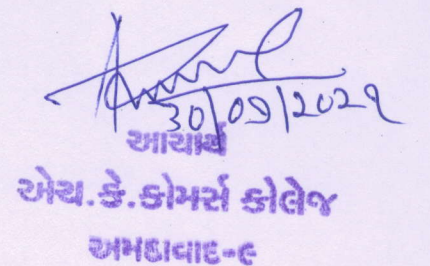 30/09/2021
આચાર્ય
એચ.કે.કોમર્સ કોલેજ
અમદાવાદ-૯